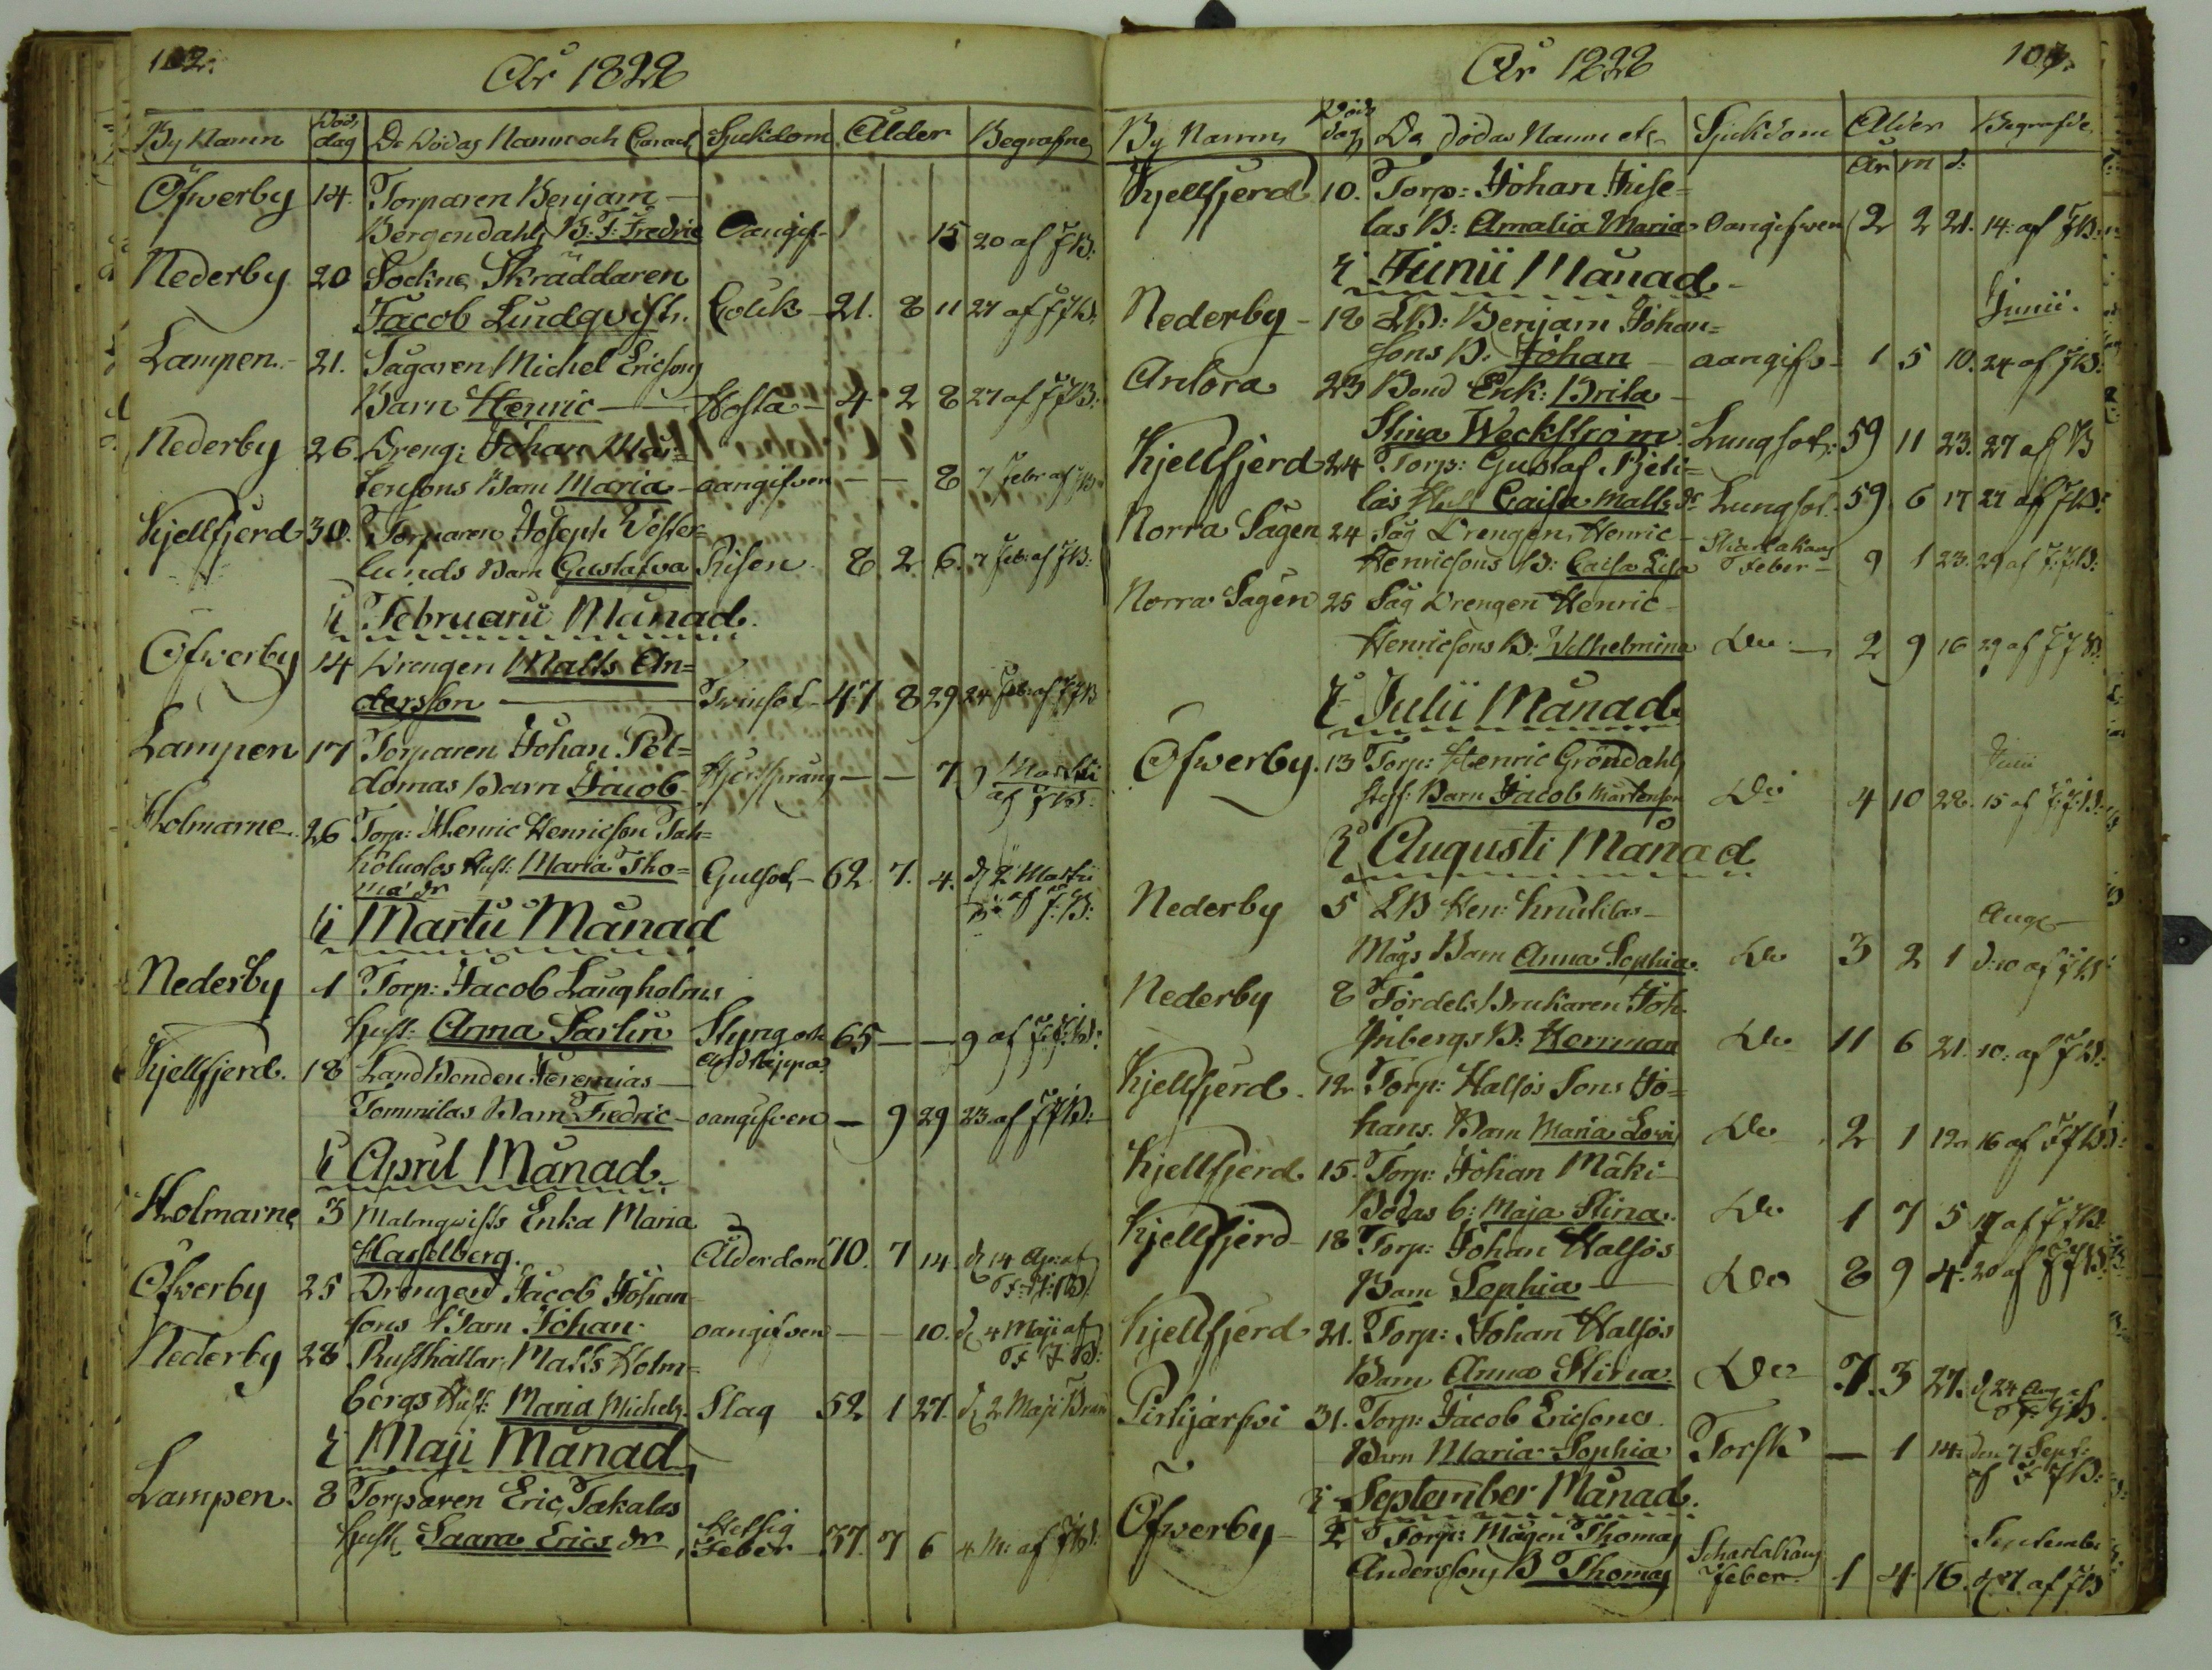 102.
År 1828
By Namn Död, dag De Dödas Namn och Caract. Sjukdom Ålder Begrafne
Öfwerby 14. Torparen Benjam
Bergendahls B: J: Fredric Oangif- 15 20 af JB:
Nederby 20 Sockne Skräddaren
Jacob Lindqvist. Colik 21. 8 11 27 af JJB:
Lampen. 21. Sågaren Michel Ericsons
Barn Henric Hosta 4 2 8 27 af JJB:
Nederby 26 Dreng: Johan Mår=
tensons Barn Maria oangifven — — 8 7 Febr af JB
Kjellfjerd 30. Torparen Joseph Vester=
lunds Barn Gustafva Risen 8 2 6. 7 Feb: af JB:
i Februarii Månad.
Öfwerby 14 Drengen Matts An=
dersson Twinsot 47 8 29 24 Feb: af JJB
Lampen 17 Torparen Johan Pel=
domas Barn Jacob Hjertsprång — — 7 Martii
af JB:
Holmarne 26 Torp: Henric Henricson
Hust: Maria Tho= Gulsot 62. 7. 4. d 2 Martii
ma: dr af J: B:
i Martii Månad
Nederby 1 Torp: Jacob Laugholms
hust: Anna Sarlin Styng och 65 — — 9 af J: J: B:
Kjellfjerd. 18 Landbonden Jeremias
Tommilas Barn Fredric oangifven — 9 29 23. af JJB:
i April Månad
Holmarne 3 Malmqwists Enka Maria
Hasselberg. Ålderdom 70. 7 14. d 14 Apr: af
J: J: B:
Öfwerby 25 Drengen Jacob Johan
sons Barn Johan oangifven — — 10. d 4 Maji af
J J B:
Nederby 28 Rusthållar Matts Holm=
bergs Hust: Maria Michels. Slag 52 1 27. d 2 Maji
i Maji Månad
Lampen. 8 Torparen Eric Takalas
hust Saara Erics dr Hetsig
Feber 37. 7 6 4 M: af JB:
År 1828
103.
By Namn Död dag De Dödas Namn etc Sjukdom Ålder Begrafde
År m d:
Kjellfjerd 10. Torp: Johan Juse=
las B: Amalia Maria Oangifwen 2 2 21. 14: af JB:
i Junii Månad
Junii.
Nederby 18 LB: Benjam Johan=
sons B. Johan oangif- 1 5 10. 24 af JB:
Anlora 23 Bond Enk: Brita
Stina Weckström Lungsot: 59 11 23. 27 af B
Kjellfjerd 24 Torp: Gustaf
las Hust Caisa Matts dr Lungsot. 59. 6 17 27 af JB:
Norra Sågen 24 Såg Drengen Henric
Henricsons B: Caisa Lisa Skarlakans
Feber 9 1 23. 29 af J: J: B:
Norra Sågen 25 Såg Drengen Henric
Henricsons B: Wilhelmina Do 2 9 16 29 af JJB:
i Julii Månad
Öfwerby. 13 Torp: Henric Gröndahls
Styf: Barn Jacob Mårtenson Do 4 10 28. 15 af J: J: B:
i Augusti Månad
Nederby 5 LB Hen: Knutilas
Mågs Barn Anna Sophia. Do 3 2 1 d: 10 af JB
Nederby 8 Fördels Brukaren Joh.
B: Herrman Do 11 6 21. 10: af JB:
Kjellfjerd. 12 Torp: Halsös Sons Jo=
hans. Barn Maria Lovis Do 2 1 12 16 af JJB:
Kjellfjerd 15. Torp: Johan Mäki
Bodas b: Maja Stina. Do 1 7 5 17 af JJB:
Kjellfjerd 18 Torp: Johan Halsös
Barn Sophia Do 8 9 4. 20 af JJB:
Kjellfjerd 21. Torp: Johan Halsös
Barn Anna Stina. Do 7. 3 27. d 24 Aug af
J: J: B.
Pirkjärfvi 31. Torp: Jacob Ericsons
Barn Maria Sophia Torsk — 1 14. den 7 Sept:
af J JB:
i September Månad.
September
Öfwerby 2 Torp: Mågen Thomas
Anderssons B Thomas Scharlakans
feber. 1 4 16. d 7. af JB